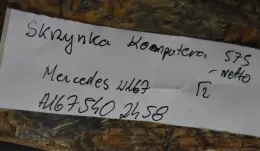 Skrzynka Komputera 575
- Netto
Mercedes W167
A167 540 2458